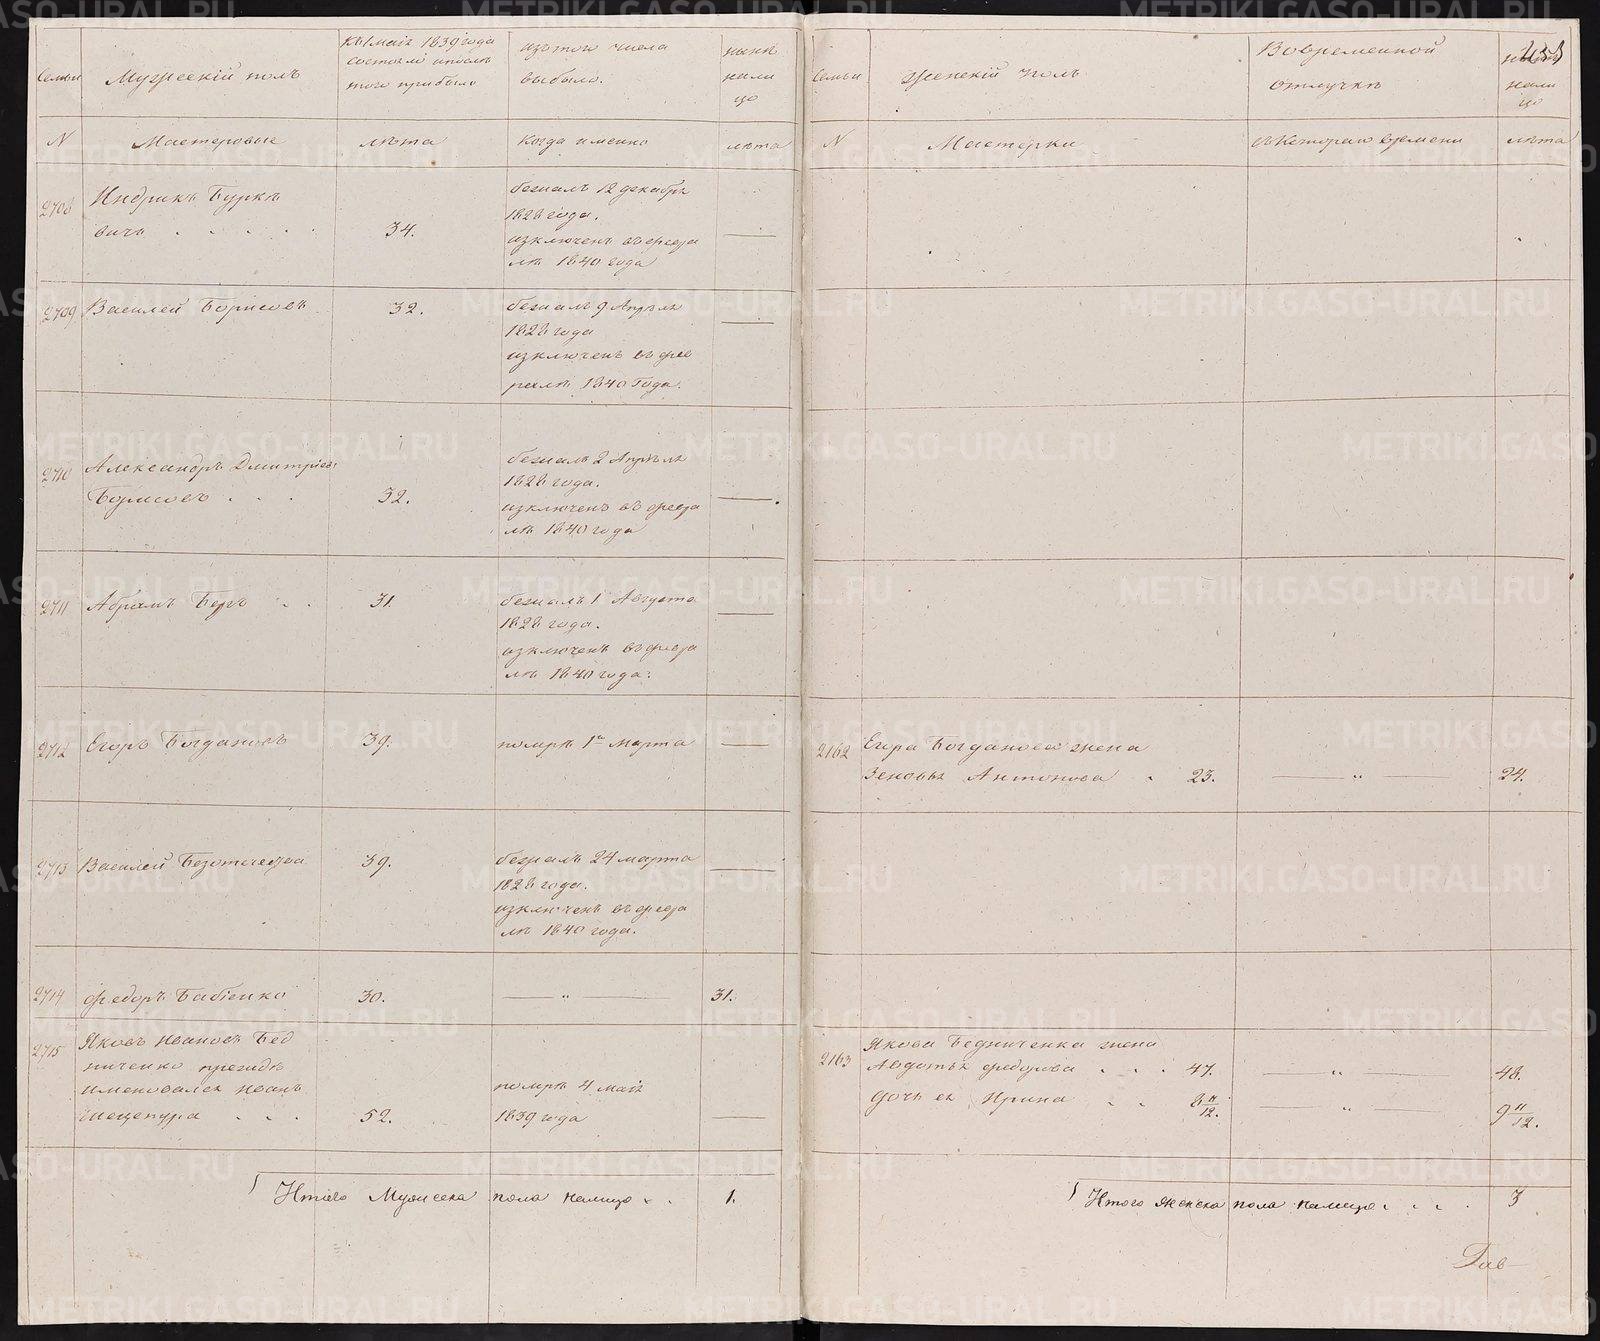 Семьи
Мужескій полъ
къ 1 маія 1839 года
состояло и послѣ
того прибыло
изъ того числа
выбыло.
нынѣ
нали
цо
N
Мастеровые
лѣта
когда именно
лѣта
2708
Индрикъ Бурке
вичь . . . . .
34.
бежалъ 12 декабря
1828 года.
изключенъ въ
лѣ 1840 года
2709
Василей Борисовъ
32.
бежалъ 9 Апрѣля
1828 года
изключенъ въ фев
ралѣ 1840 года.
2710
Александръ Дмитріевъ
Борисовъ . . .
32.
бежалъ 2 Апрѣля
1828 года.
изключенъ въ
лѣ 1840 года
2711
Абрамъ Беръ . .
31.
бежалъ 1 Августа
1828 года.
изключенъ въ
лѣ 1840 года.
2712
Егоръ Богдановъ
39.
помре 1го марта
2713
Василей Безотчества
39.
бежалъ 24 марта
1828 года.
изключенъ въ
лѣ 1840 года.
2714
Федоръ Бабіенко
30.
— „ —
31.
2715
Яковъ Ивановъ Бед
ниченко прежде
именовался Иванъ
52.
помре 4 маія
1839 года
Итого Мужеска пола налицо . .
1.
Семьи
Женскій полъ
Во временной
отлучкѣ
нали
цо
N
Мастерки
съ котораго времени
лѣта
2162
Егора Богданова жена
Зеновья Антонова . 23.
— „ —
24.
2163
Якова Бедниченка жена
Авдотья Федорова . . . 47.
— „ —
48.
дочь ея Ирина . . 8 11/12.
— „ —
9 11/12.
Итого женска пола налицо . . . .
3
Гав
METRIKI.GASO-URAL.RU